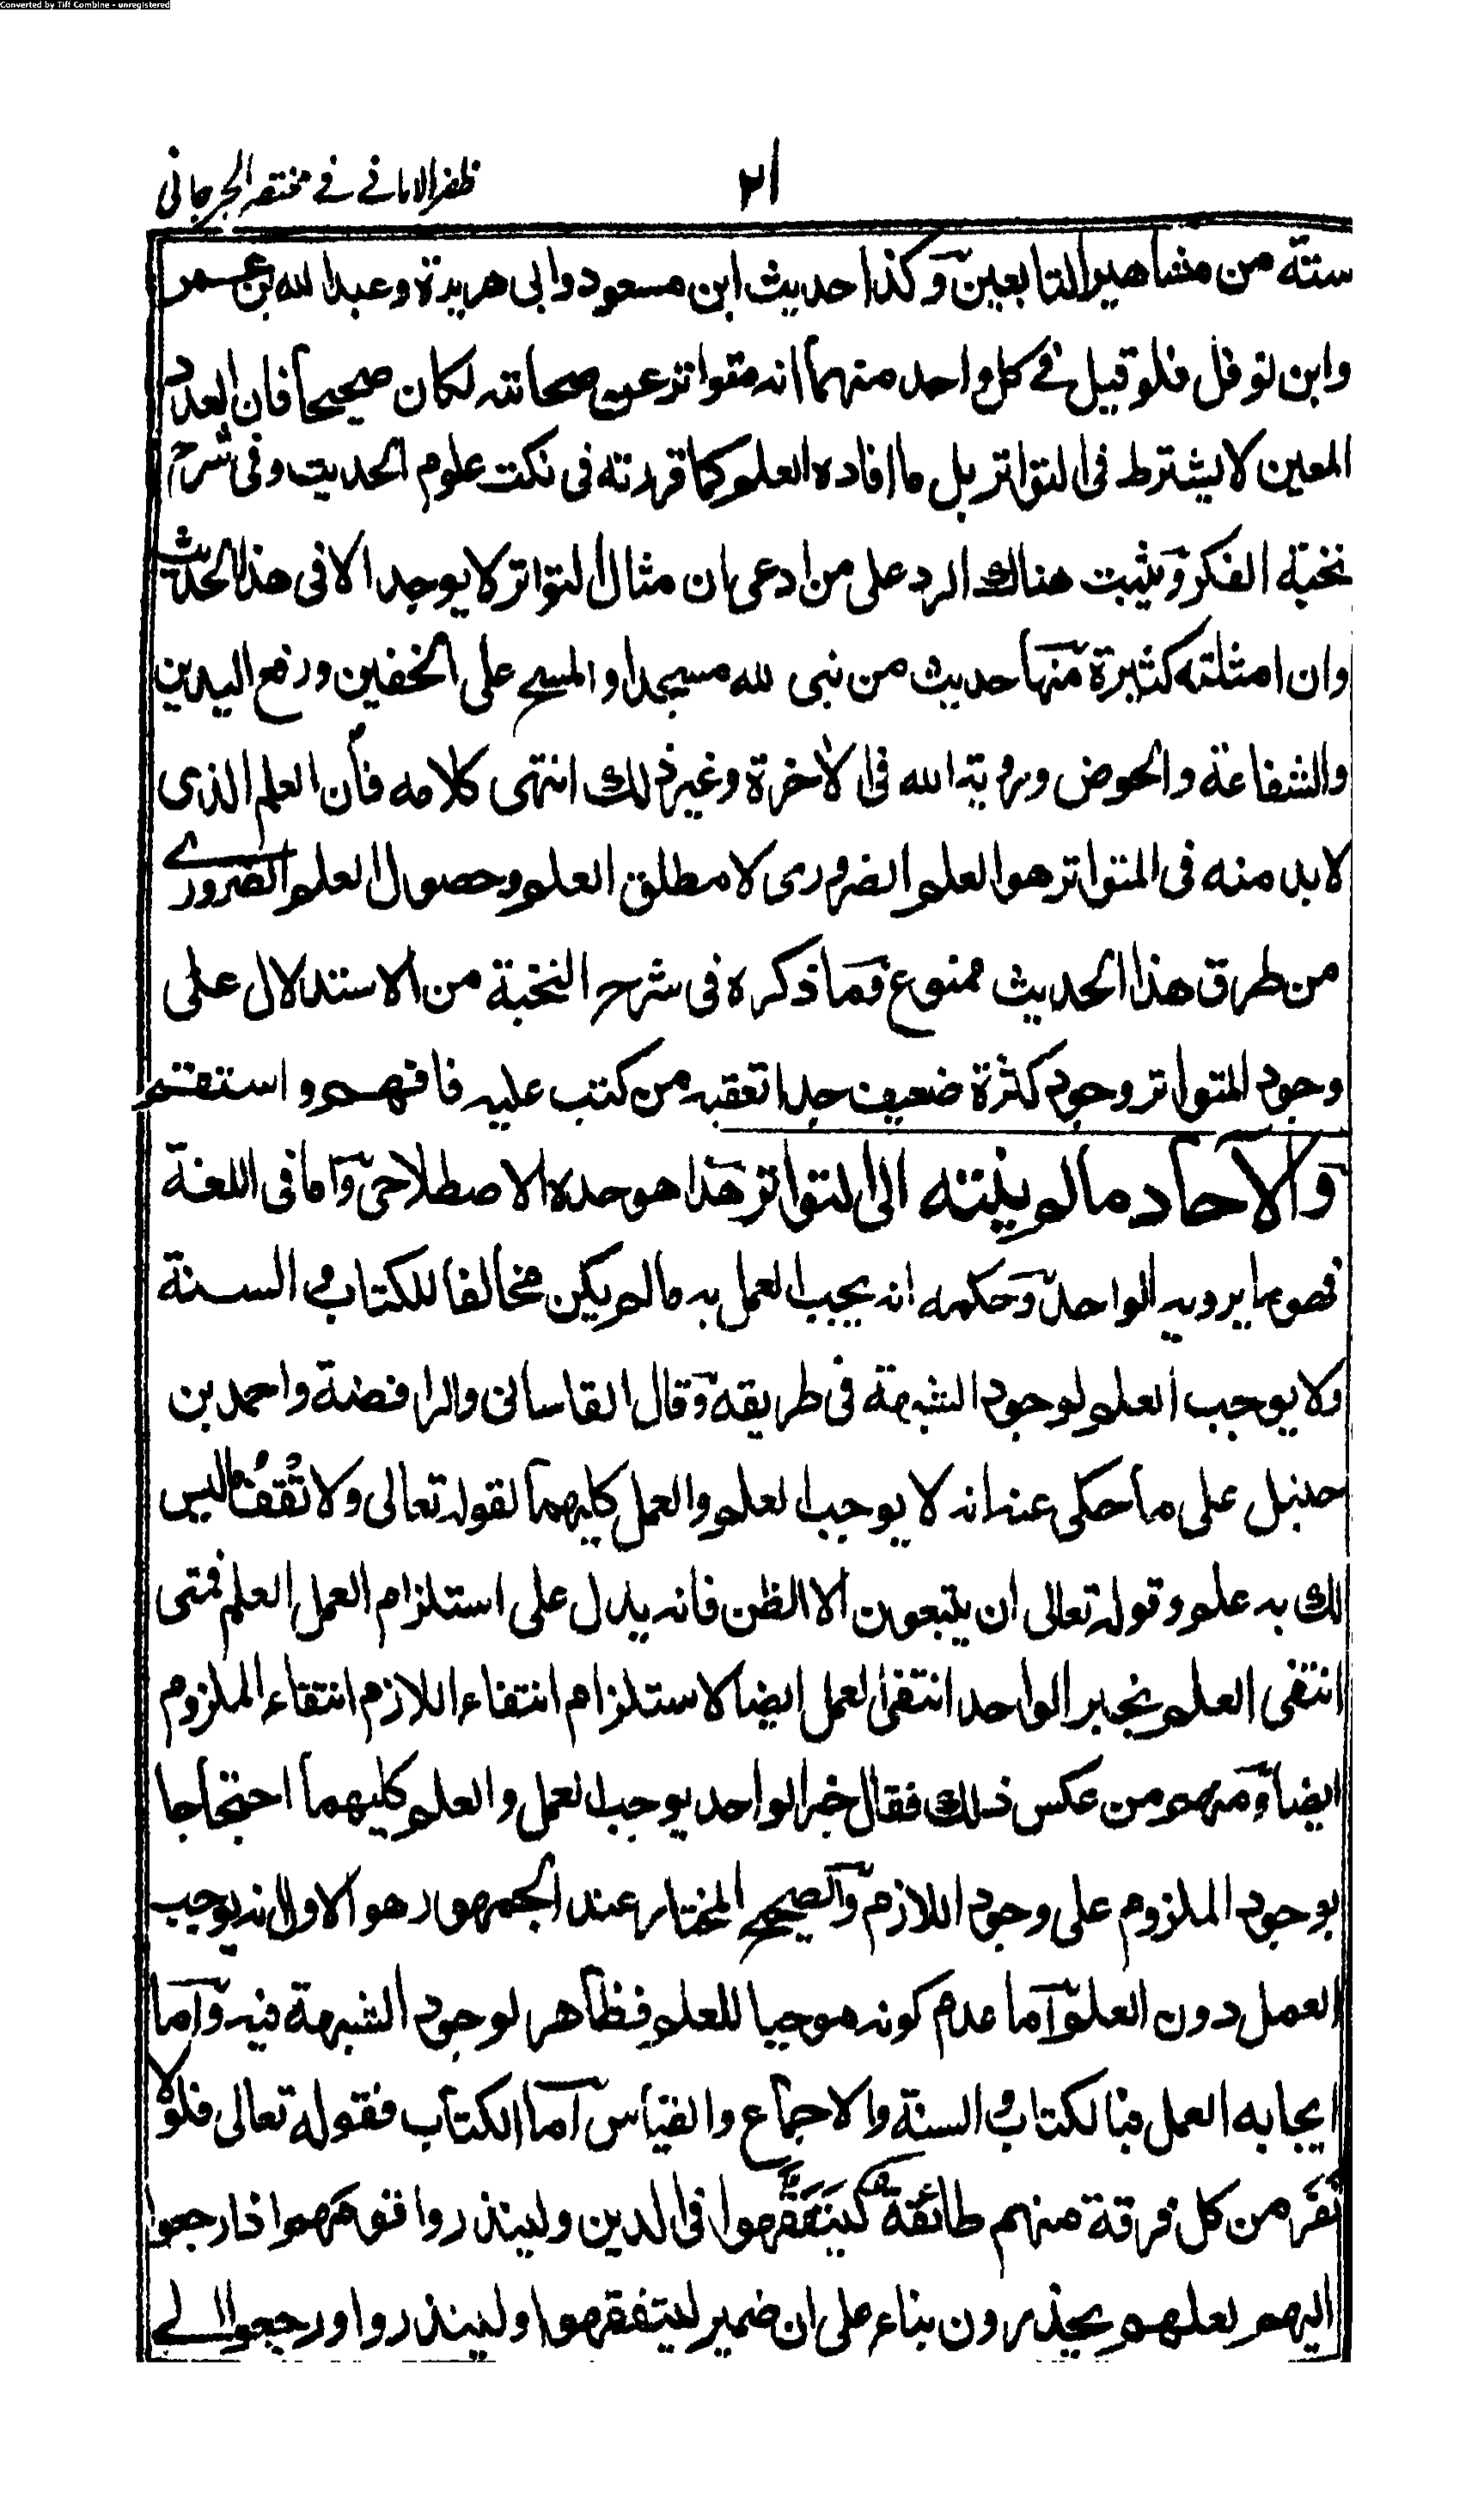 Converted by Tiff Combine - unregistered
٢١
ظفر الاماني في مختصر الجرجاني
ستة من مشاهير التابعين وكذا حديث ابن مسعود وابى هريرة وعبد الله بن عمر
وابن نوفل فلو قيل فى كل واحد منهما انه متواتر عن صحابته لكان صحيحا فان العدد
المعين لا يشترط فى التواتر بل ما افاده العلم كما قررته فى نكت علوم الحديث وفى شرح
نخبة الفكر وبينت هناك الرد على من ادعى ان مثال التواتر لا يوجد الا فى هذا الحديث
وان امثلته كثيرة منها حديث من بنى لله مسجدا والمسح على الخفين ورفع اليدين
والشفاعة والحوض ورؤية الله فى الاخرة وغير ذلك انتهى كلامه فان العلم الذى
لا بد منه فى المتواتر هو العلم الضرورى لا مطلق العلم وحصول العلم الضرورے
من طرق هذا الحديث ممنوع فما ذكره فى شرح النخبة من الاستدلال على
وجود المتواتر وجود كثرة ضعيف جدا تعقبه من كتب عليه فافهم واستقم
والآحاد ما لم ينته الى التواتر هذا هو حده الاصطلاحى واما فى اللغة
فهو ما يرويه الواحد وحكمه انه يجب العمل به ما لم يكن مخالفا للكتاب و السنة
ولا يوجب العلم لوجود الشبهة فى طريقه وقال القاسانى والرافضة واحمد بن
حنبل على ما حكى عنه انه لا يوجب العلم والعمل كليهما لقوله تعالى ولا تقف ما ليس
لك به علم وقوله تعالى ان يتبعون الا الظن فانه يدل على استلزام العمل العلم فمتى
انتفى العلم بخبر الواحد انتفى العمل ايضا لاستلزام انتفاء اللازم انتفاء الملزوم
ايضا ومنهم من عكس ذلك فقال خبر الواحد يوجب العمل والعلم كليهما احتجاجا
بوجود الملزوم على وجود اللازم والصحيح المختار عند الجمهور هو الاول انه يوجب
العمل دون العلم اما عدم كونه موجبا للعلم فظاهر لوجود الشبهة فيه واما
ايجابه العمل فبالكتاب و السنة والاجماع والقياس اما الكتاب فقوله تعالى فلولا
نفر من كل فرقة منهم طائفة ليتفقهوا فى الدين ولينذروا قومهم اذا رجعوا
اليهم لعلهم يحذرون بناء على ان ضمير ليتفقهوا ولينذروا ورجعوا الے